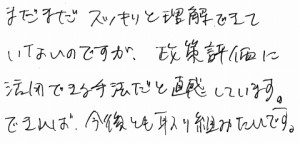 まだまだ スッキリと理解できて
いないのですが、政策評価に
活用できる手法だと直感しています。
できれば、今後とも取り組みたいです。